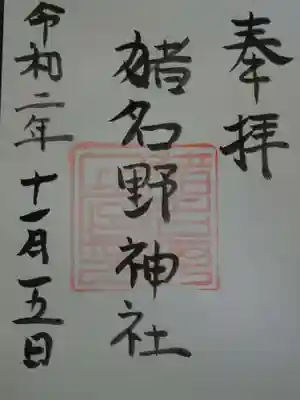 奉拝
猪名野神社
令和二年十一月十五日